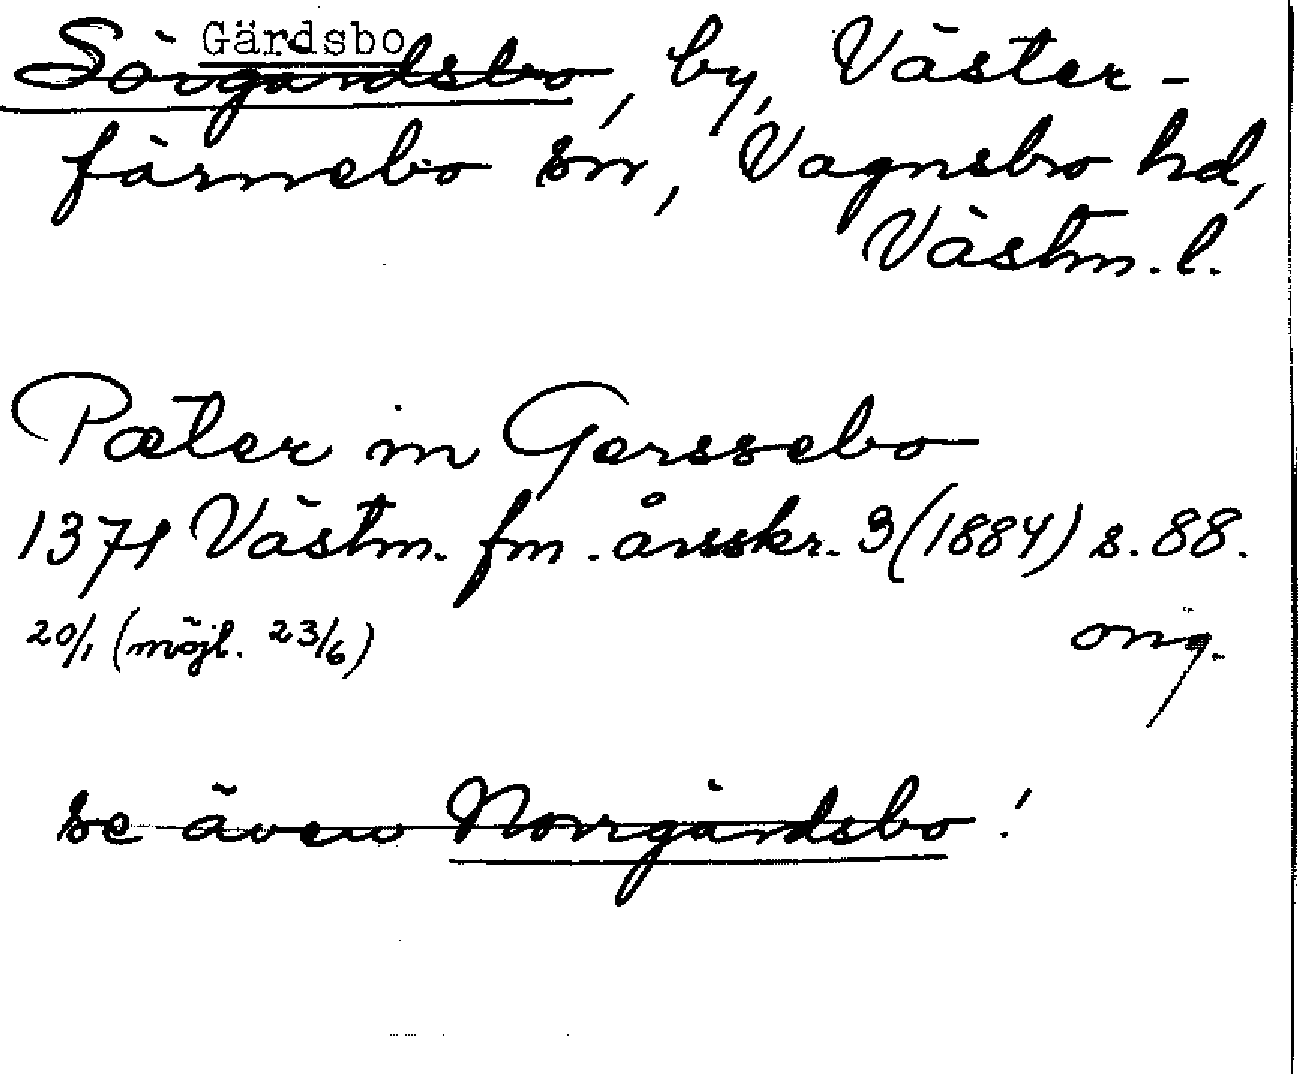 Gärdsbo
Sörgärdsbo, by, Väster-
färnebo sn, Vagnsbro hd,
Västm. l.
Pæter in Gerssebo
1371 Västm. fm. årsskr. 3 (1884) s. 88.
20/1 (möjl. 23/6) orig.
se även Norrgärdsbo!